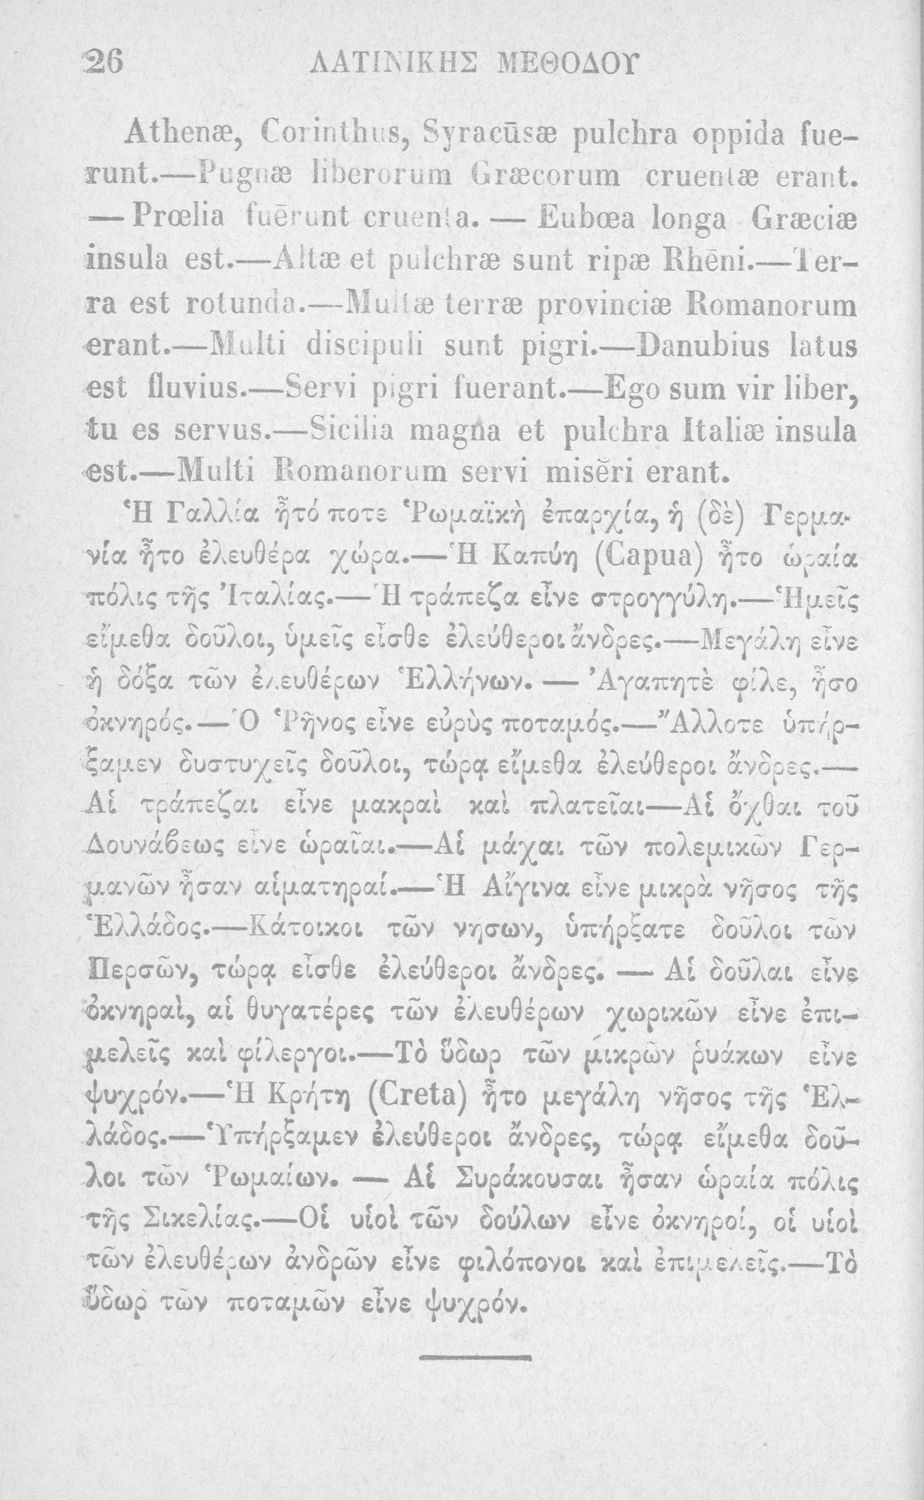 26 ΛΑΤΙΝΙΚΗΣ ΜΕΘΟΔΟΥ
Athenæ, Corinthus, Syracūsæ pulchra oppida fue-
runt.—Pugnæ liberorum Græcorum cruentæ erant.
— Prœlia fuērunt cruenta. — Eubœa longa Græciæ
insula est.—Altæ et pulchræ sunt ripæ Rhēni.—Ter-
ra est rotunda.—Multæ terræ provinciæ Romanorum
erant.—Multi discipuli sunt pigri.—Danubius latus
est fluvius.—Servi pigri fuerant.—Ego sum vir liber,
tu es servus.—Sicilia magna et pulchra Italiæ insula
est.—Multi Romanorum servi misĕri erant.
Ἡ Γαλλία ἦτό ποτε Ῥωμαϊκὴ ἐπαρχία, ἡ (δὲ) Γερμα-
νία ἦτο ἐλευθέρα χώρα.—Ἡ Καπύη (Capua) ἦτο ὡραία
πόλις τῆς Ἰταλίας.—Ἡ τράπεζα εἶνε στρογγύλη.—Ἡμεῖς
εἴμεθα δοῦλοι, ὑμεῖς εἶσθε ἐλεύθεροι ἄνδρες.—Μεγάλη εἶνε
ἡ δόξα τῶν ἐλευθέρων Ἑλλήνων. — Ἀγαπητὲ φίλε, ἦσο
ὀκνηρός.—Ὁ Ῥῆνος εἶνε εὐρὺς ποταμός.—Ἄλλοτε ὑπήρ-
ξαμεν δυστυχεῖς δοῦλοι, τώρᾳ εἴμεθα ἐλεύθεροι ἄνδρες.—
Αἱ τράπεζαι εἶνε μακραὶ καὶ πλατεῖαι—Αἱ ὄχθαι τοῦ
Δουνάβεως εἶνε ὡραῖαι.—Αἱ μάχαι τῶν πολεμικῶν Γερ-
μανῶν ἦσαν αἱματηραί.—Ἡ Αἴγινα εἶνε μικρὰ νῆσος τῆς
Ἑλλάδος.—Κάτοικοι τῶν νήσων, ὑπήρξατε δοῦλοι τῶν
Περσῶν, τώρᾳ εἶσθε ἐλεύθεροι ἄνδρες. — Αἱ δοῦλαι εἶνε
ὀκνηραὶ, αἱ θυγατέρες τῶν ἐλευθέρων χωρικῶν εἶνε ἐπι-
μελεῖς καὶ φίλεργοι.—Τὸ ὕδωρ τῶν μικρῶν ῥυάκων εἶνε
ψυχρόν.—Ἡ Κρήτη (Creta) ἦτο μεγάλη νῆσος τῆς Ἑλ-
λάδος.—Ὑπήρξαμεν ἐλεύθεροι ἄνδρες, τώρᾳ εἴμεθα δοῦ-
λοι τῶν Ῥωμαίων. — Αἱ Συράκουσαι ἦσαν ὡραία πόλις
τῆς Σικελίας.—Οἱ υἱοὶ τῶν δούλων εἶνε ὀκνηροί, οἱ υἱοὶ
τῶν ἐλευθέρων ἀνδρῶν εἶνε φιλόπονοι καὶ ἐπιμελεῖς.—Τὸ
ὕδωρ τῶν ποταμῶν εἶνε ψυχρόν.